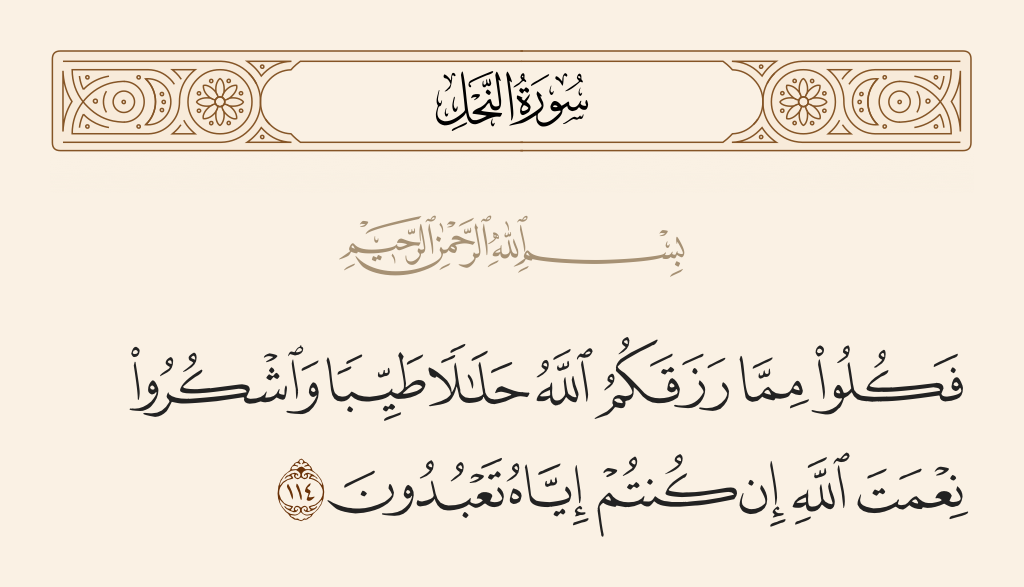 سُورَةُ النَّحْلِ
بِسْمِ ٱللَّهِ ٱلرَّحْمَٰنِ ٱلرَّحِيمِ
فَكُلُوا۟ مِمَّا رَزَقَكُمُ ٱللَّهُ حَلَٰلًا طَيِّبًا وَٱشْكُرُوا۟
نِعْمَتَ ٱللَّهِ إِن كُنتُمْ إِيَّاهُ تَعْبُدُونَ ١١٤